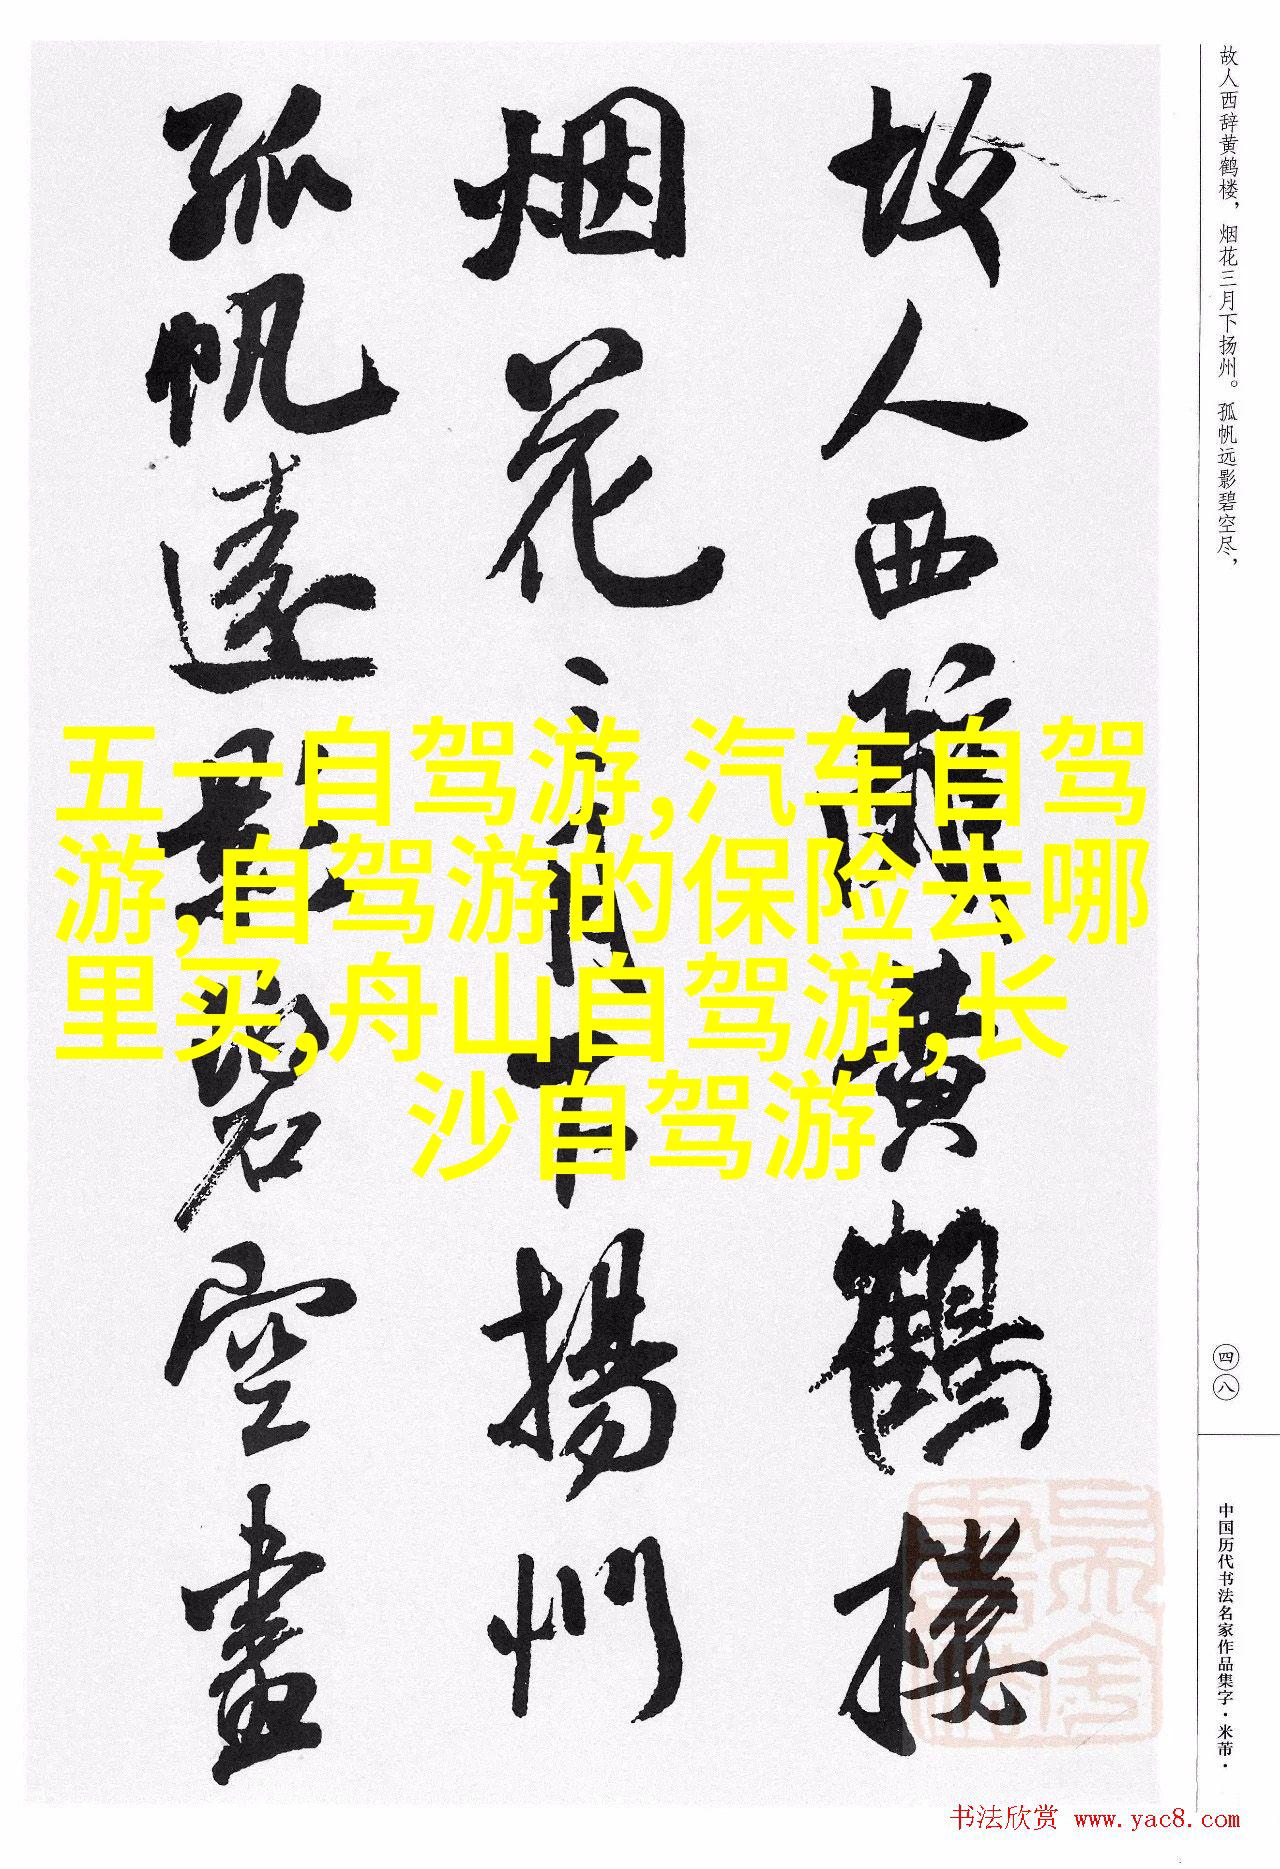 故人西辞黄鹤楼，烟花三月下扬州。孤帆远影碧空尽，
故人西辭黄鶴楼
烟花三月下揚州
孤帆遠影碧空盡
五一自驾游,汽车自驾
游,自驾游的保险去哪
里买,舟山自驾游,长
沙自驾游
四八
中国历代书法名家作品集字·米芾·
书法欣赏 www.yac8.com